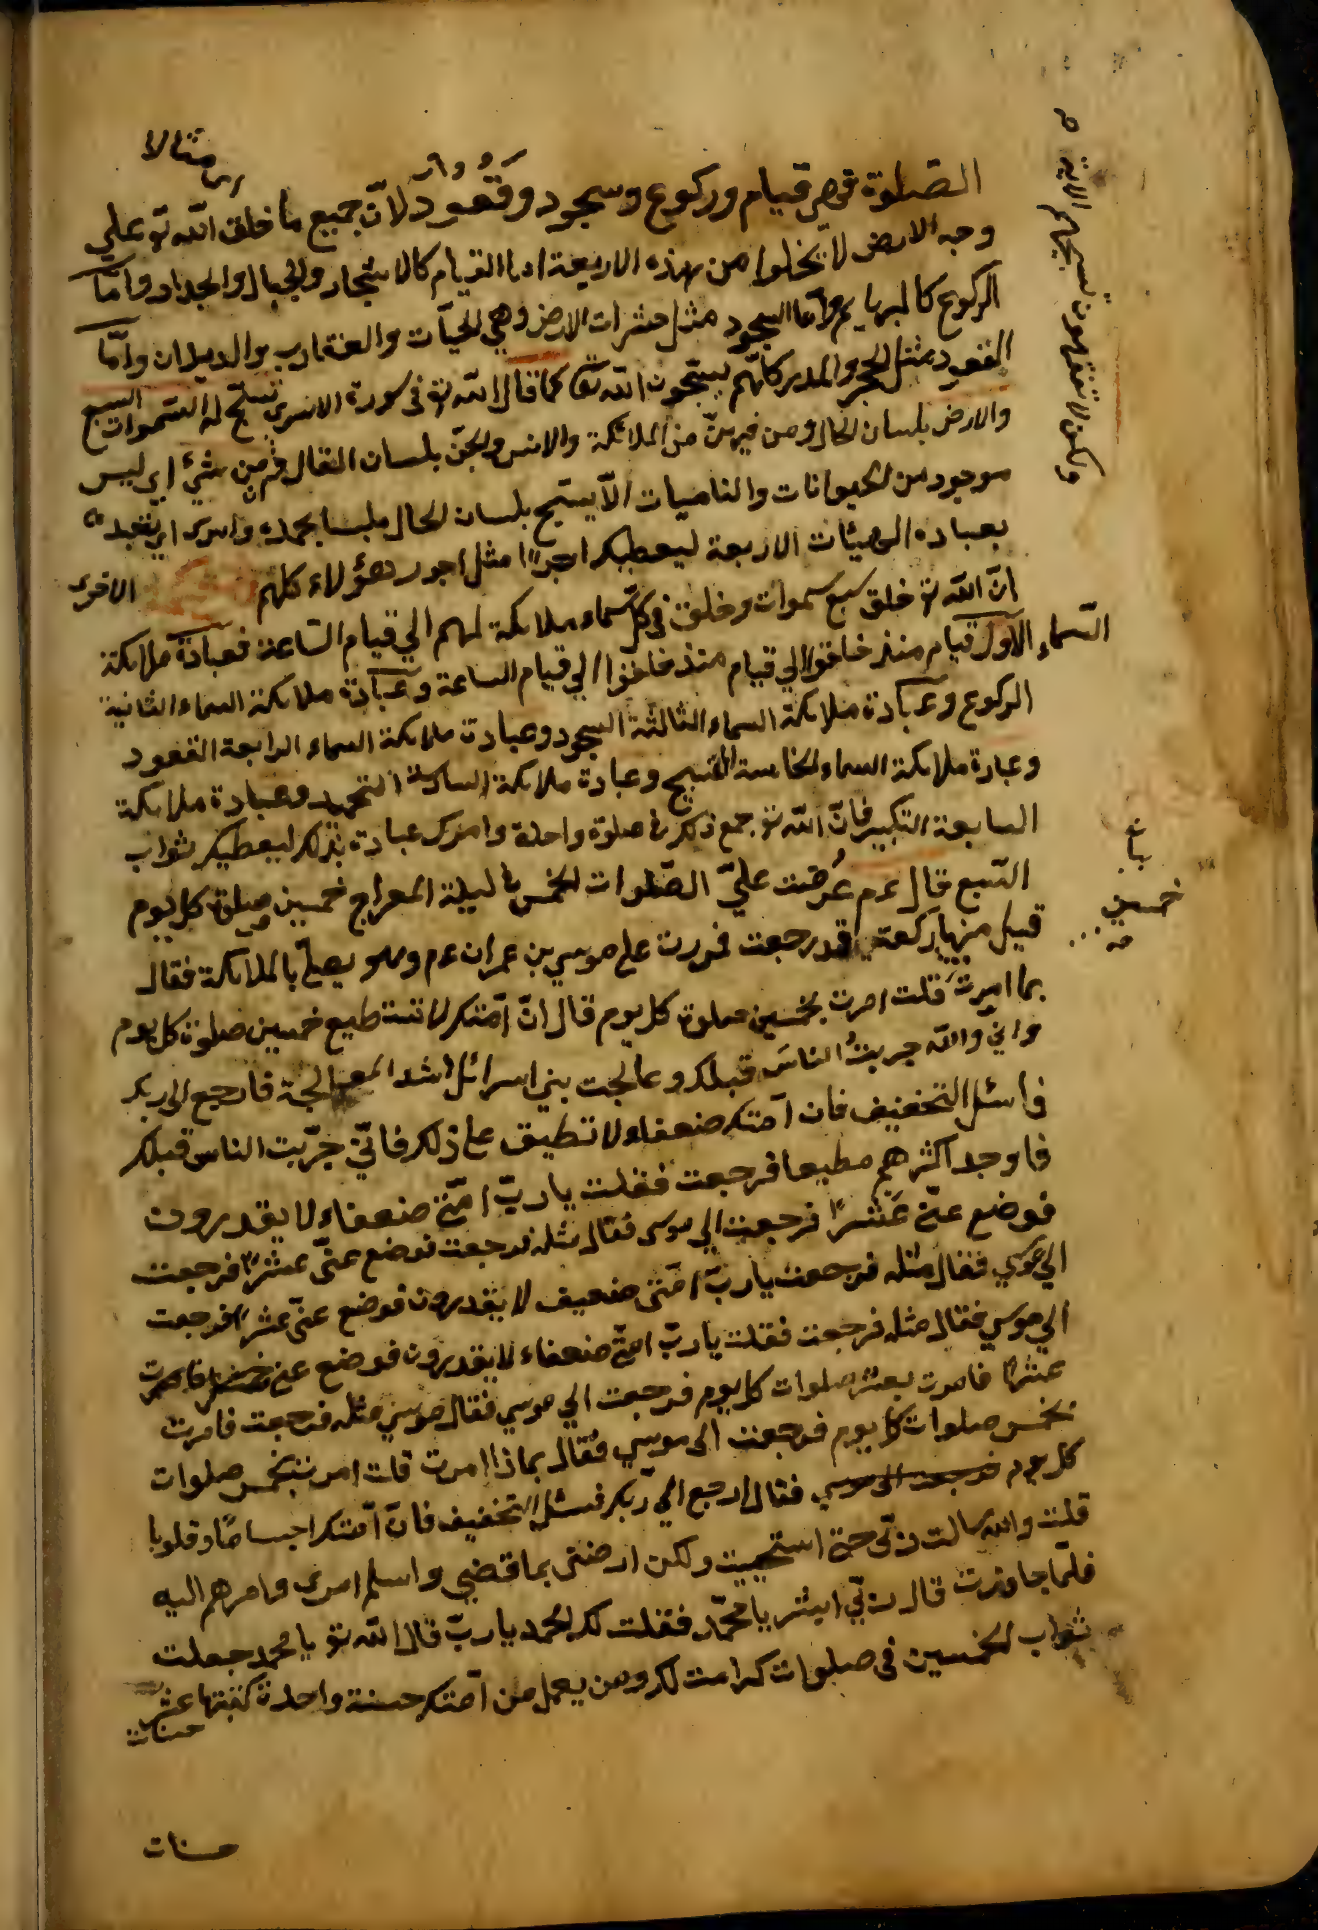 مثالا
الصّلوة فهي قيام وركوع وسجود وقُعُود لانّ جميع ما خلق الله تع علي
وجه الارض لا يخلوا من هذه الاربعة اما القيام كالاشجار والجبال والجدار وامّا
الركوع كالبهايم وامّا السجود مثل حشرات الارض وهي الحيّات والعقارب والديدان وامّا
القعود مثل الحجر والمدر كلّهم يسبّحون الله تع كما قال الله تع في سورة الاسرى تسبّح له السّموات السبع
والارض بلسان الحال ومن فيهنّ من الملائكة والانس والجنّ بلسان المقال وان من شيء اي ليس
موجود من الحيوانات والناميات الّا يسبّح بلسان الحال ملبسا بحمده وامرك ان تعبد
بعباده الهيئات الاربعة ليعطيك اجرًا مثل اجور هؤلاء كلهم الاخرى
انّ الله تع خلق سبع سموات وخلق في كلّ سماء ملائكة لهم الي قيام السّاعة فعبادة ملائكة
السّماء الاول قيام منذ خلقوا الي قيام منذ خلقوا الي قيام الساعة وعبادة ملائكة السماء الثانية
الركوع وعبادة ملائكة السماء الثالثة السجود وعبادة ملائكة السماء الرابعة القعود
وعبادة ملائكة السماء الخامسة التسبيح وعبادة ملائكة السادسة التحميد وعبادة ملائكة
السابعة التكبير فانّ الله تع جمع ذلك في صلوة واحدة وامرك عبادة بذلك ليعطيك ثواب
السّبع قال عم عُرضت عليّ الصّلوات الخمس يا ليلة المعراج خمسين صلوة كل يوم
قبل منها ركعة قد رجعت فمررت علي موسي بن عمران عم وهو يصلّي بالملائكة فقال
بما امرت قلت امرت بخمسين صلوة كل يوم قال انّ امّتك لا تستطيع خمسين صلوة كل يوم
واني والله جربتُ الناسَ قبلك وعالجت بني اسرائل اشد المعالجة فارجع الي ربك
فاسئل التخفيف فان امّتك ضعفاء لا تطيق علي ذلك فانّي جرّبت الناس قبلك
فاوجد اكثرهم مطيعا فرجعت فقلت يا ربّ امّتي ضعفاء لا يقدرون
فوضع عنّي عَشْرًا فرجعت الي موسي فقال مثله فرجعت فوضع عنّي عشرًا فرجعت
الي موسي فقال مثله فرجعت يا ربّ امّتي ضعيف لا يقدرون فوضع عنّي عشرًا فرجعت
الي موسي فقال مثله فرجعت فقلت يا ربّ امّتي ضعفاء لا يقدرون فوضع عنّي
عشرًا فامرت بعشر صلوات كل يوم فرجعت الي موسي فقال موسي مثله فرجعت فامرت
بخمس صلوات كل يوم فرجعت الي موسي فقال بماذا امرت قلت امرت بخمس صلوات
كل يوم فرجعت الي موسي فقال ارجع الي ربّك فسئل التخفيف فانّ امّتك اجساما وقلوبا
قلت والله سالت ربّي حتي استحييت ولكن ارضني بما قضي واسلم امري وامرهم اليه
فلمّا جاوزت قال ربّي ابشر يا محمّد فقلت لك الحمد يا ربّ قال الله تع يا محمد جعلت
ثواب الخمسين في صلوات كرامت لك ومن يعمل من امّتك حسنة واحدة كتبتها عشر
حسنات
حسنات
ولكن لا تفقهون تسبيحهم الاية
خمسين